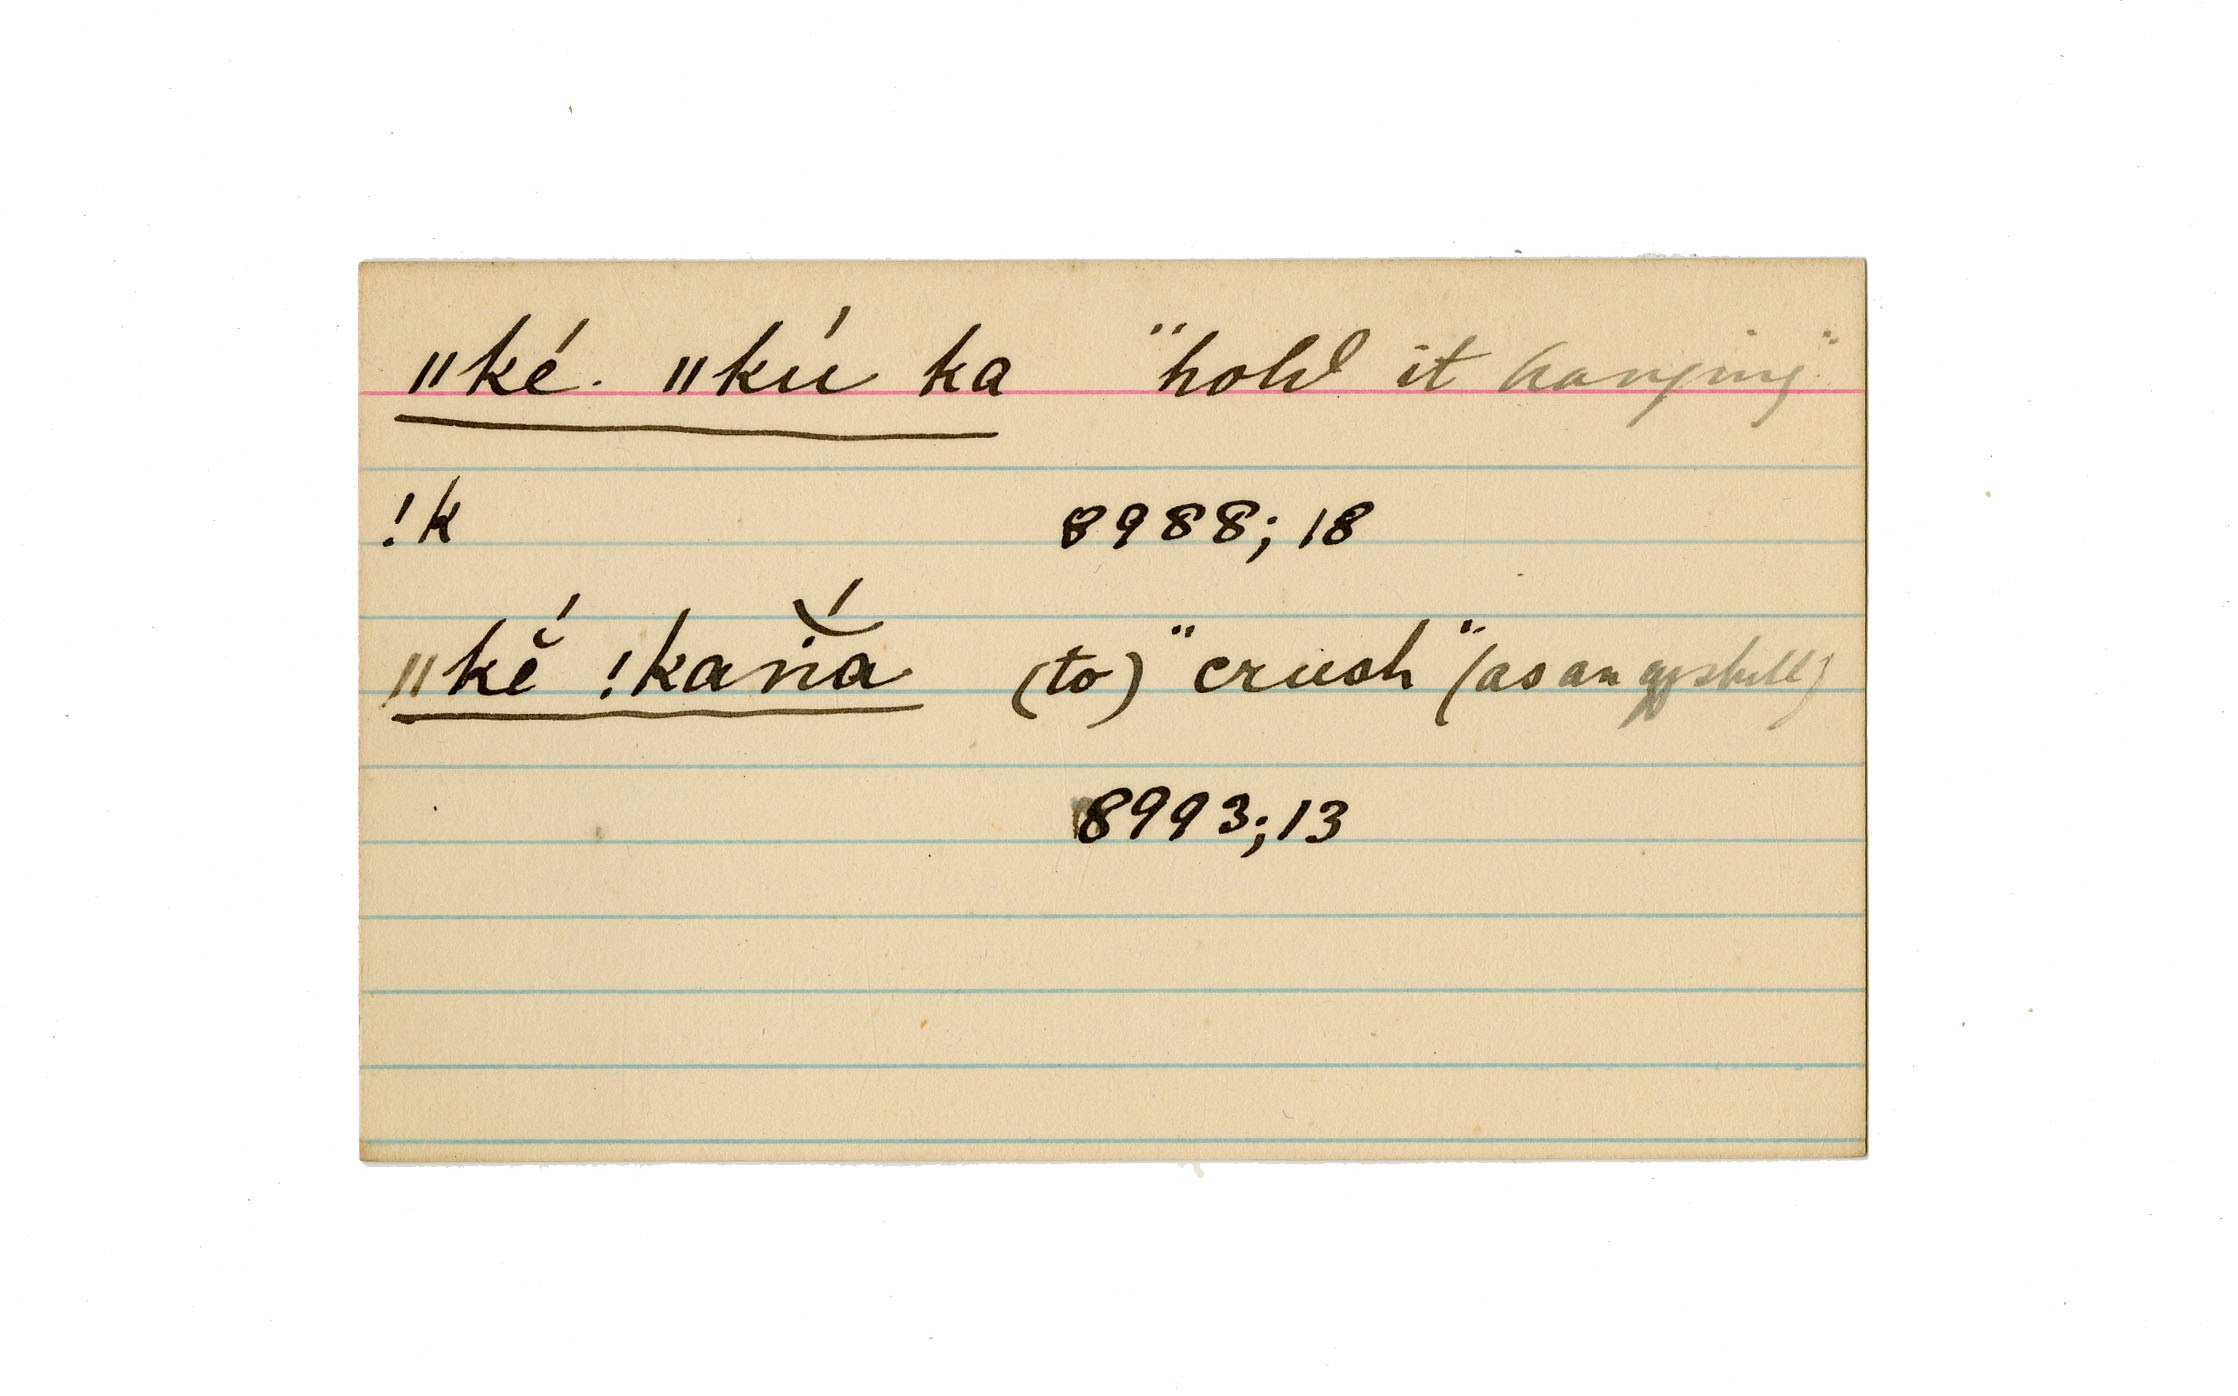 ǁké. ǁkú ka "hold it hanging"
!k 8988; 18
ǁkĕ́ !kaṅ̆́a (to) "crush" (as an eggshell)
8993; 13